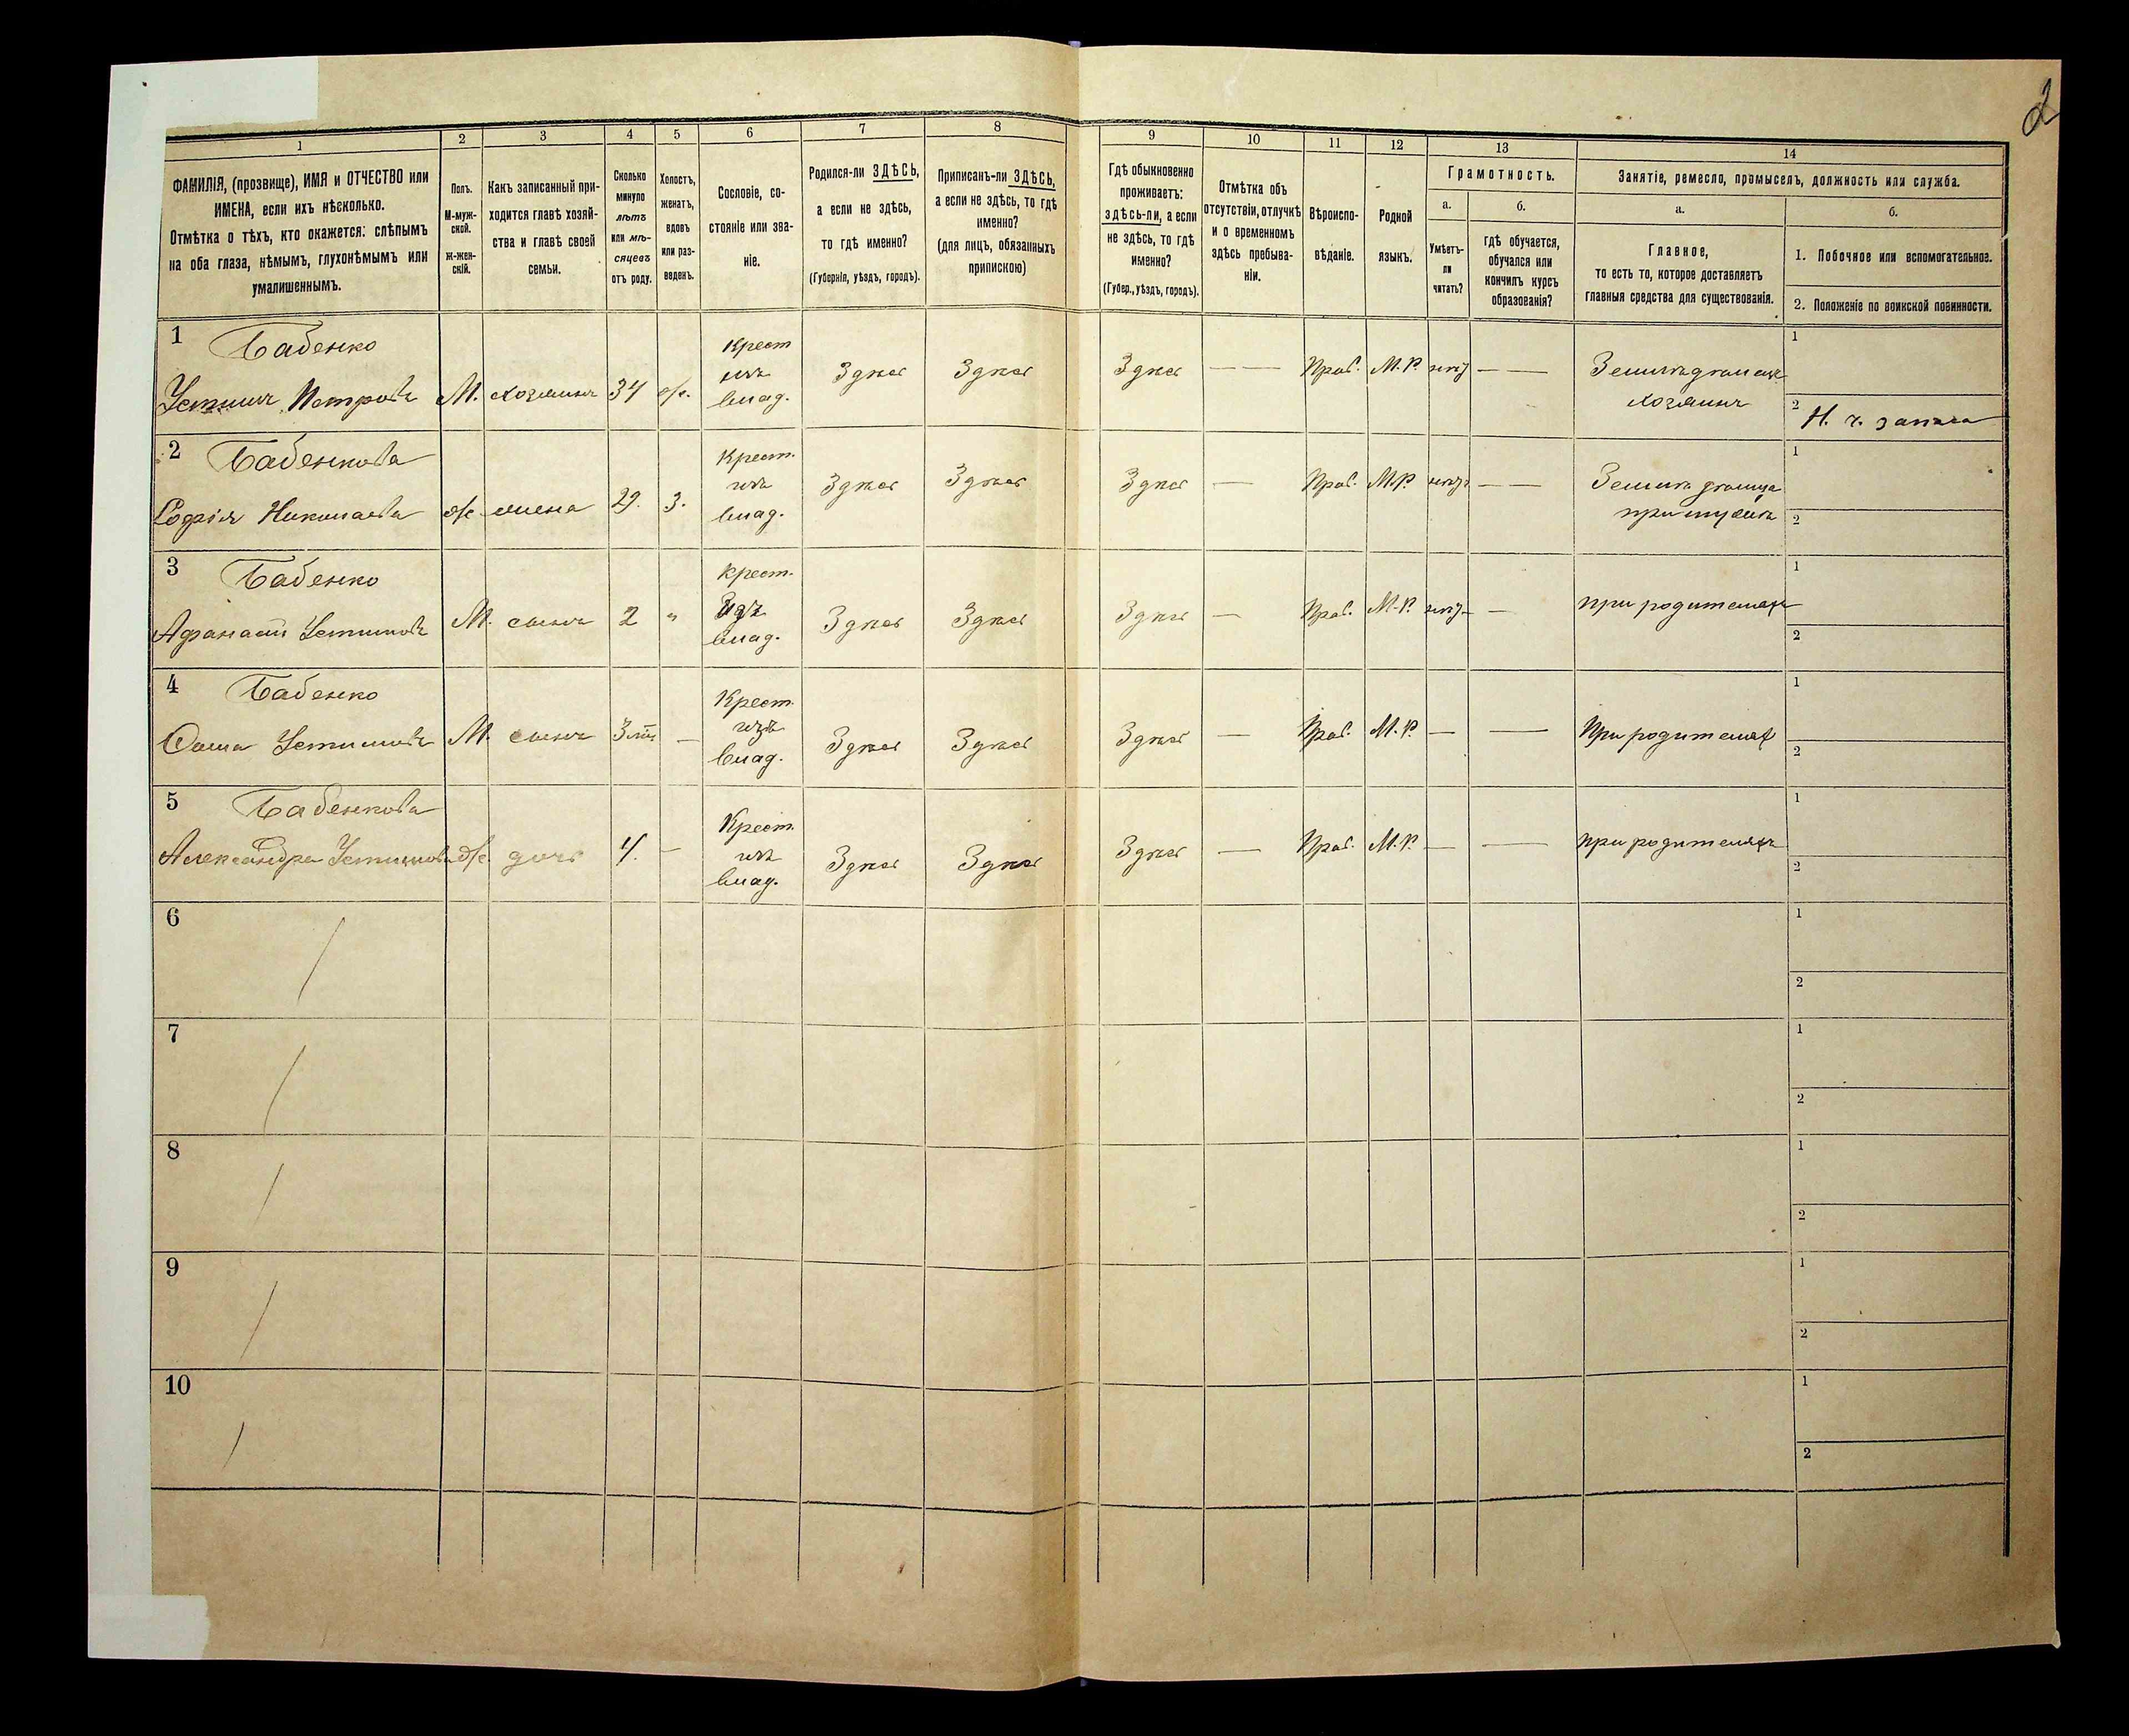 2
1
2
3
4
5
6
7
8
9
10
11
12
13
14
ФАМИЛІЯ, (прозвище), ИМЯ и ОТЧЕСТВО или
ИМЕНА, если ихъ нѣсколько.
Отмѣтка о тѣхъ, кто окажется: слѣпымъ
на оба глаза, нѣмымъ, глухонѣмымъ или
умалишеннымъ.
Полъ.
М-муж-
ской.
Ж-жен-
скій.
Какъ записанный при-
ходится главѣ хозяй-
ства и главѣ своей
семьи.
Сколько
минуло
лѣтъ
или мѣ-
сяцевъ
отъ роду.
Холостъ,
женатъ,
вдовъ
или раз-
веденъ.
Сословіе, со-
стояніе или зва-
ніе.
Родился-ли ЗДѢСЬ,
а если не здѣсь,
то гдѣ именно?
(Губернія, уѣздъ, городъ).
Приписанъ-ли ЗДѢСЬ,
а если не здѣсь, то гдѣ
именно?
(для лицъ, обязанныхъ
припискою)
Гдѣ обыкновенно
проживаетъ:
здѣсь-ли, а если
не здѣсь, то гдѣ
именно?
(Губер., уѣздъ, городъ).
Отмѣтка объ
отсутствіи, отлучкѣ
и о временномъ
здѣсь пребыва-
ніи.
Вѣроиспо-
вѣданіе.
Родной
языкъ.
Грамотность.
а.
Умѣетъ-
ли
читать?
б.
гдѣ обучается,
обучался или
кончилъ курсъ
образованія?
Занятіе, ремесло, промыселъ, должность или служба.
а.
Главное,
то есть то, которое доставляетъ
главныя средства для существованія.
б.
1. Побочное или вспомогательное.
2. Положеніе по воинской повинности.
1
Бабенко
Устинъ Петровъ
М.
хозяинъ
34
ж.
Крест
изъ
влад.
Здѣсь
Здѣсь
Здѣсь
— —
Прав.
М.Р.
нѣтъ
— —
хозяинъ
1
2
Н. ч. запаса
2
Бабенкова
Софія Николаева
ж.
жена
29.
З.
Крест.
изъ
влад.
Здѣсь
Здѣсь
Здѣсь
—
Прав.
М.Р.
нѣтъ
— —
при мужѣ
1
2
3
Бабенко
Афанасій Устиновъ
М.
сынъ
2
"
Крест.
изъ
влад.
Здѣсь
Здѣсь
Здѣсь
—
Прав.
М.Р.
нѣтъ
—
при родителяхъ
1
2
4
Бабенко
Ѳома Устиновъ
М.
сынъ
—
Крест.
изъ
влад.
Здѣсь
Здѣсь
Здѣсь
—
Прав.
М.Р.
—
—
При родителяхъ
1
2
5
Бабенкова
Александра Устинова
ж.
дочь
4.
—
Крест.
изъ
влад.
Здѣсь
Здѣсь
Здѣсь
—
Прав.
М.Р.
—
—
при родителяхъ
1
2
6
1
2
7
1
2
8
1
2
9
1
2
10
1
2